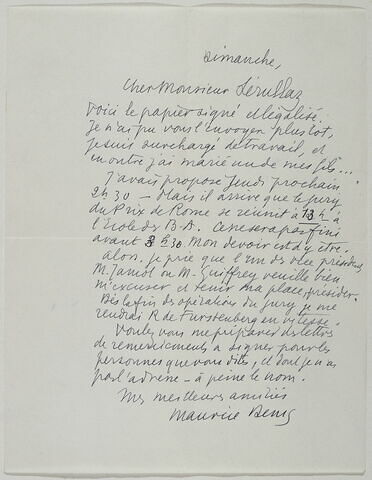 Dimanche,
Cher Monsieur Sérullaz
Voici le papier signé et légalisé.
Je n'ai pu vous l'envoyer plus tôt,
je suis surchargé de travail, et
en outre j'ai marié un de mes fils...
J'avais proposé Jeudi prochain
2h 30 — Mais il arrive que le jury
du Prix de Rome se réunit à 13h à
l'Ecole des B-A. Ce ne sera pas fini
avant 3h30. Mon devoir est d'y être.
Alors je prie que l'un des vice présidents
M. Jamot ou M. Guiffrey veuille bien
m'excuser et tenir ma place, présider.
Dès la fin des opérations du jury je me
rendrai R de Furstenberg en vitesse.
Voulez vous me préparer des lettres
de remerciements à signer pour les
personnes que vous dites, et dont je n'ai
pas l'adresse — à peine le nom.
Mes meilleures amitiés
Maurice Denis